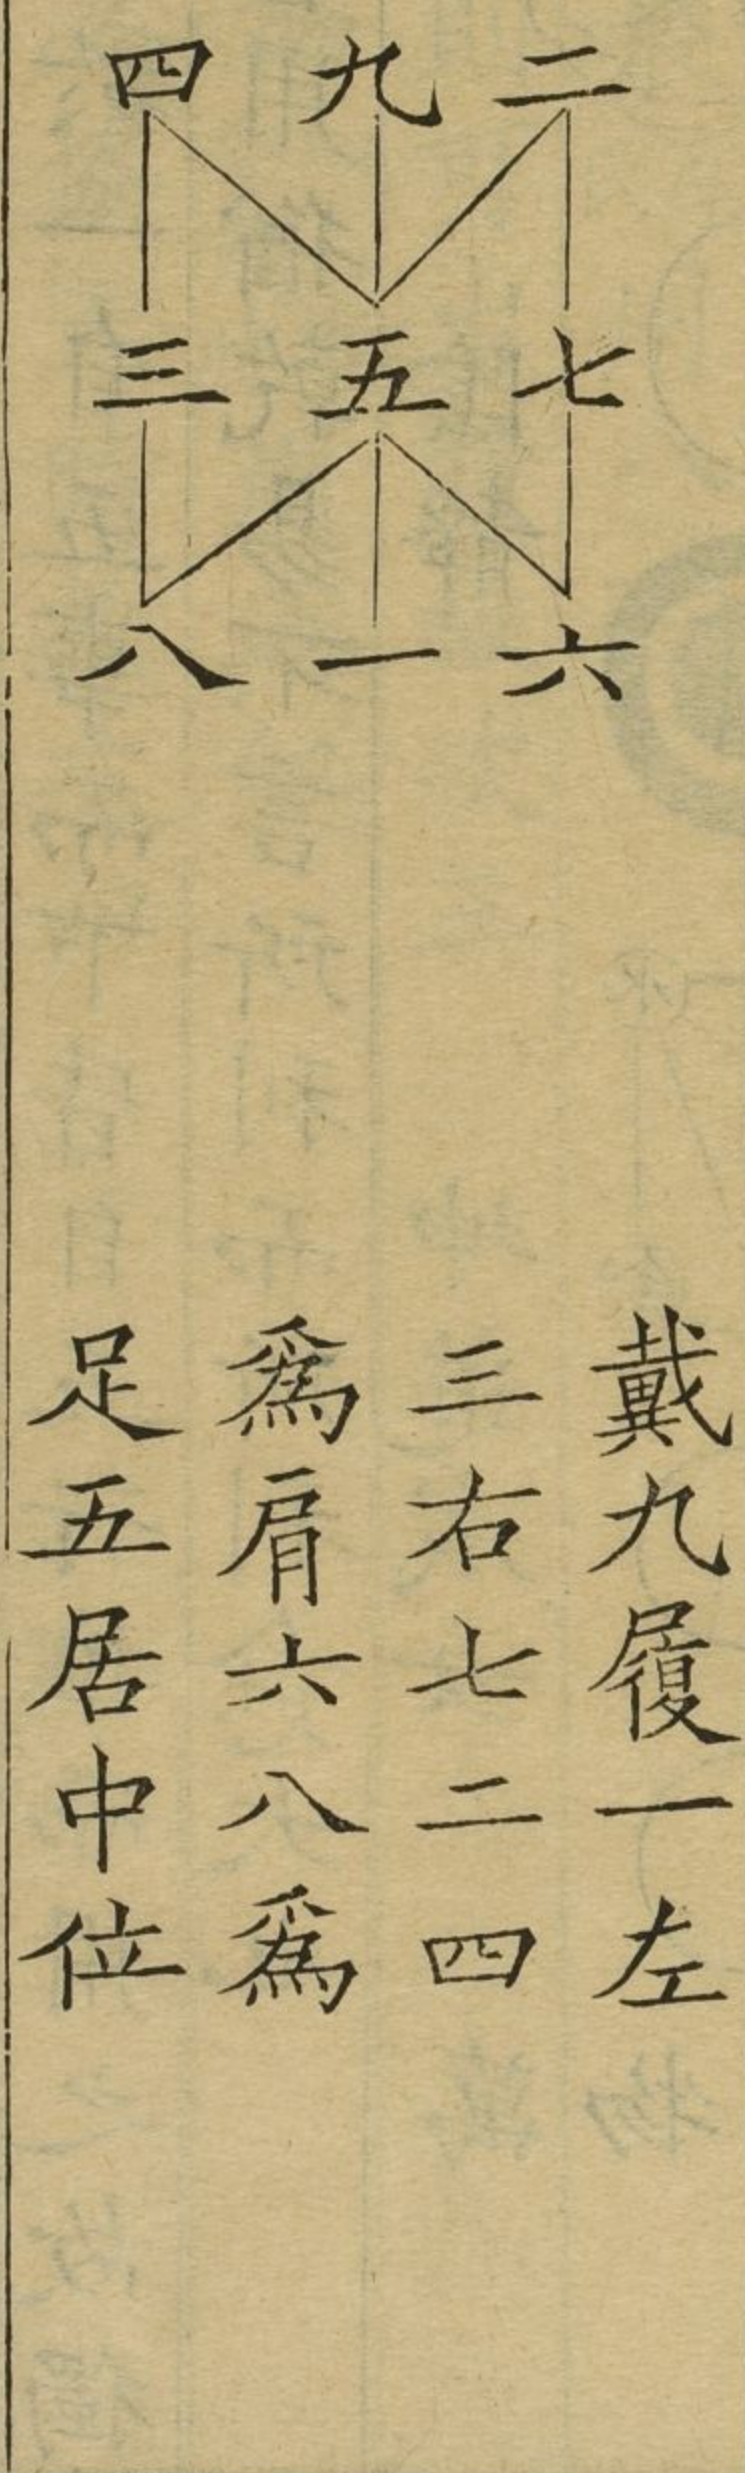 四九二
三五七
八一六
戴九履一左
三右七二四
爲肩六八爲
足五居中位